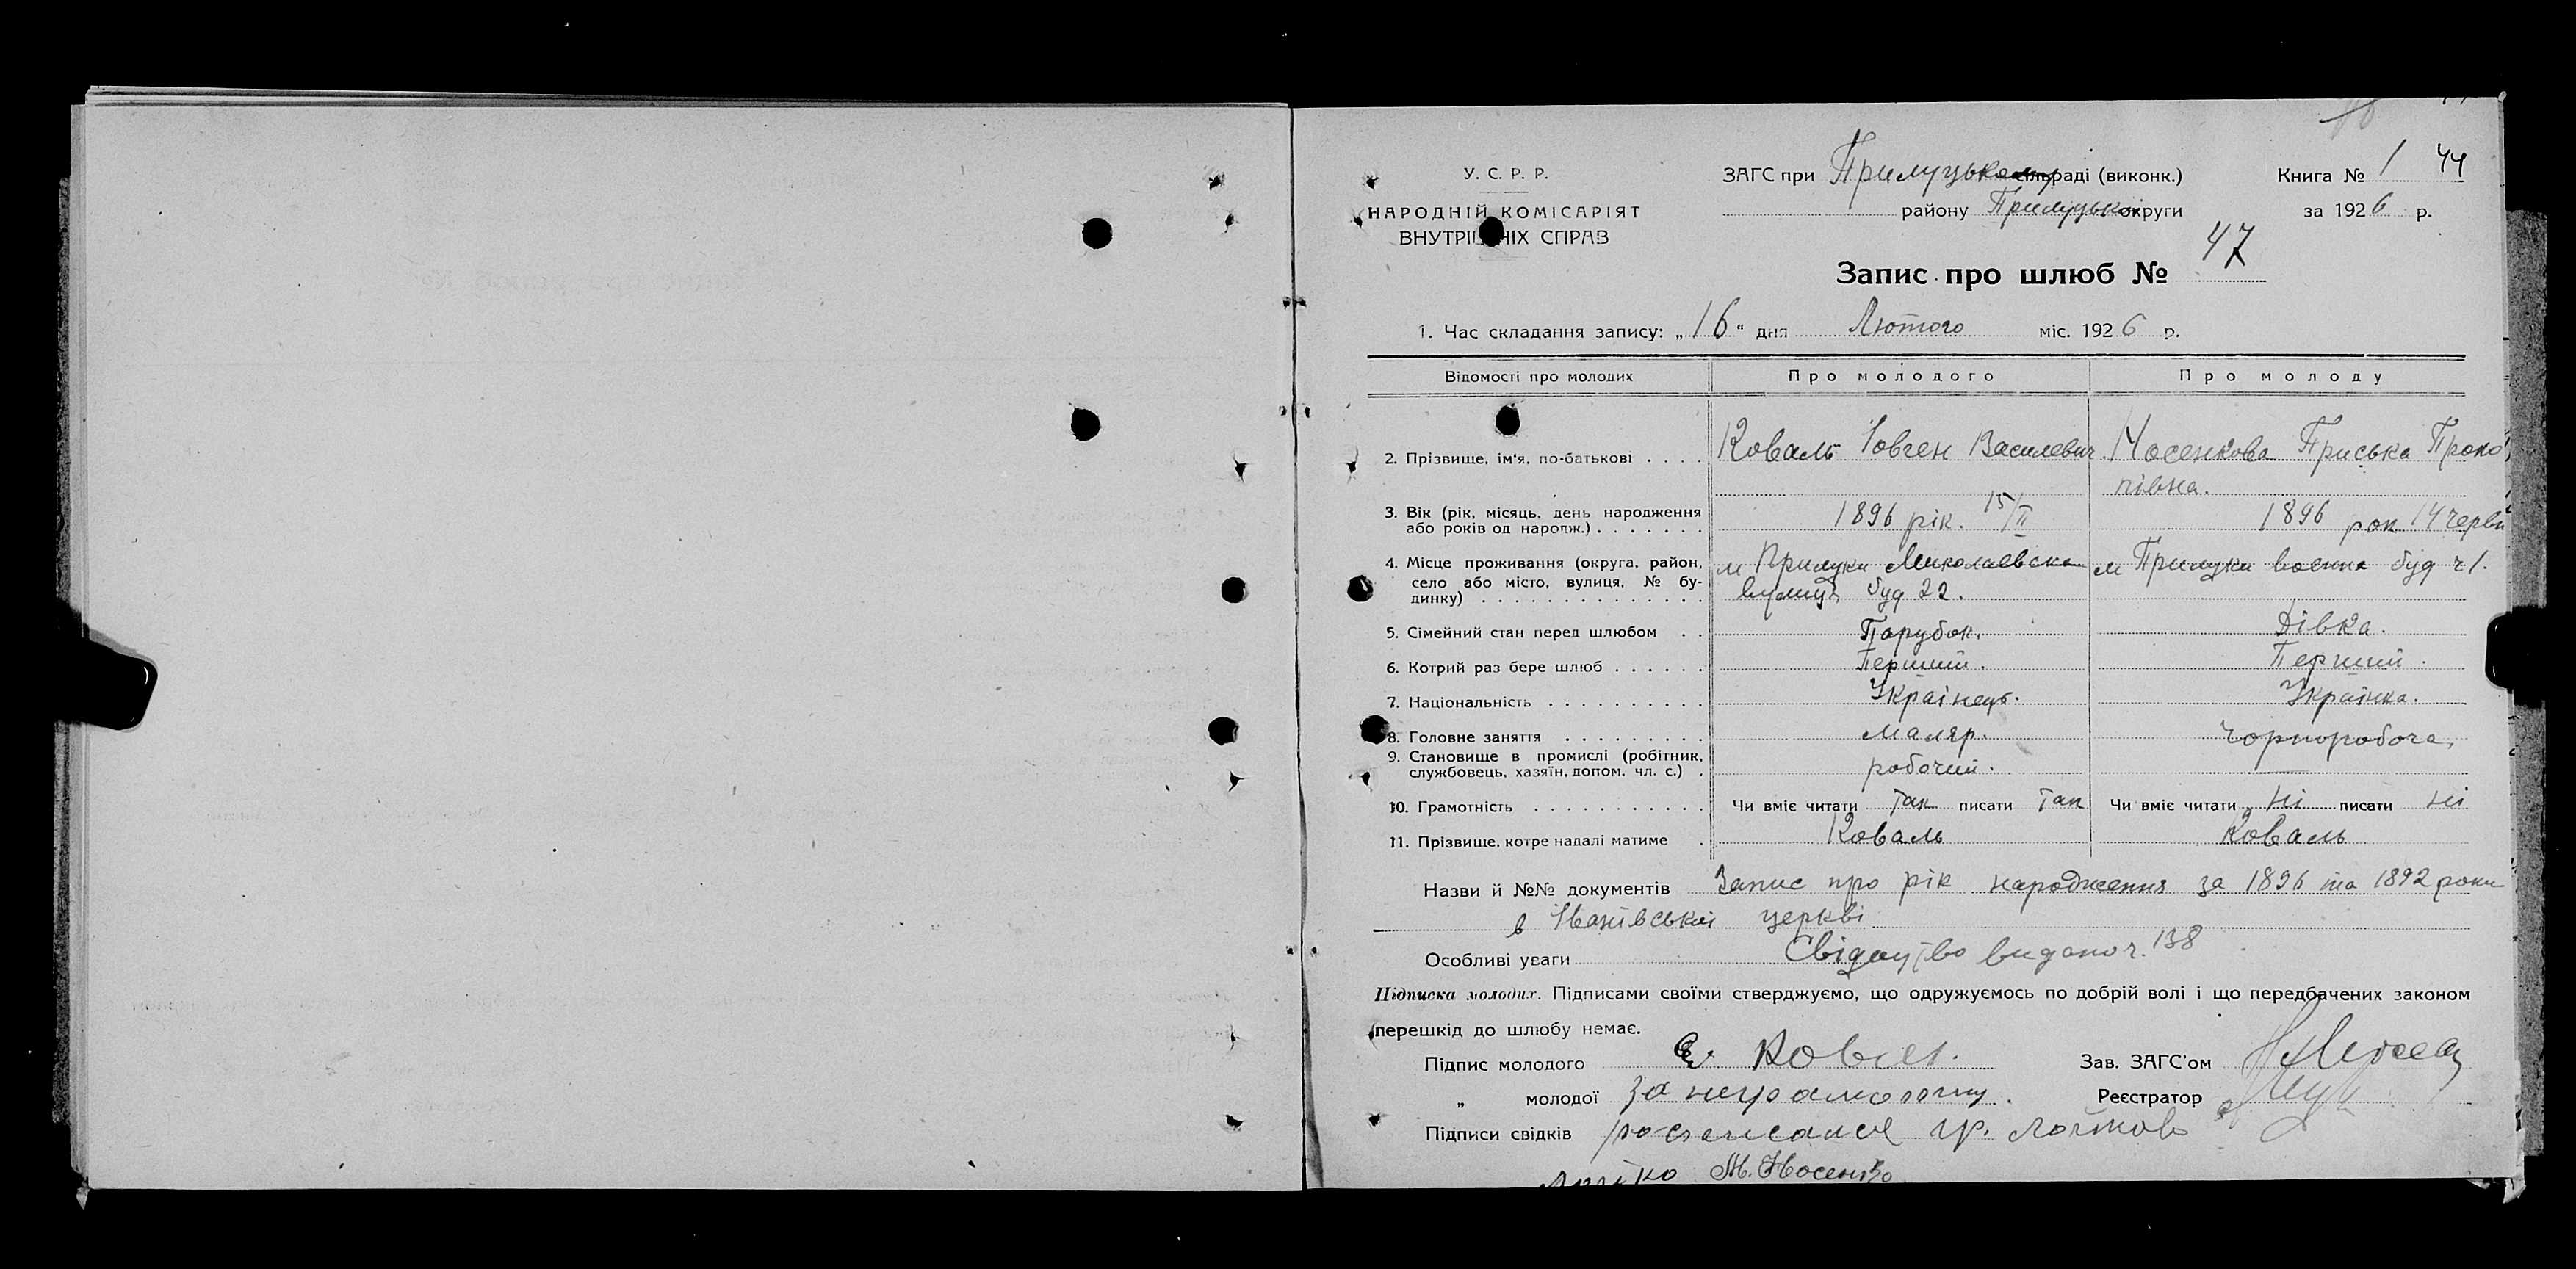 44
У. С. Р. Р.
НАРОДНІЙ КОМІСАРІЯТ
ВНУТРІШНІХ СПРАВ
ЗАГС при Прилуцькому сільраді (виконк.)
району Прилуцької округи
Книга № 1
за 1926 р.
Запис про шлюб № 47
1. Час складання запису: „16" дня Лютого міс. 1926 р.
Відомості про молодих Про молодого Про молоду
2. Прізвище, ім'я, по-батькові . . . . Коваль Йовген Василевич. Носенкова Приська Проко
півна.
3. Вік (рік, місяць, день народження
або років од народж.) . . . . . . . 1896 рік. 15/II 1896 рок 14 червн
4. Місце проживання (округа, район,
село або місто, вулиця, № бу-
динку) . . . . . . . . . . . . . .
м Прилуки Миколаевска
вулиця буд 22.
м Прилуки военна буд ч 1.
5. Сімейний стан перед шлюбом . . Парубок. Дівка.
6. Котрий раз бере шлюб . . . . . . Перший. Перший.
7. Національність . . . . . . . . . . Українець. Українка.
8. Головне заняття . . . . . . . . . Маляр. Чорноробоча,
9. Становище в промислі (робітник,
службовець, хазяїн, допом. чл. с.) . робочий. —
10. Грамотність . . . . . . . . . . . Чи вміє читати так писати так Чи вміє читати ні писати ні
11. Прізвище, котре надалі матиме . Коваль Коваль
Назви й №№ документів Запис про рік народження за 1896 та 1892 роки
в церкві
Особливі уваги Свідоцтво видано ч. 138
Підписка молодих. Підписами своїми стверджуємо, що одружуємось по добрій волі і що передбачених законом
перешкід до шлюбу немає.
Підпис молодого Є. Ковал. Зав. ЗАГС'ом
„ молодої за неграмотну. Реєстратор
Підписи свідків росписався гр.
М. Носенко